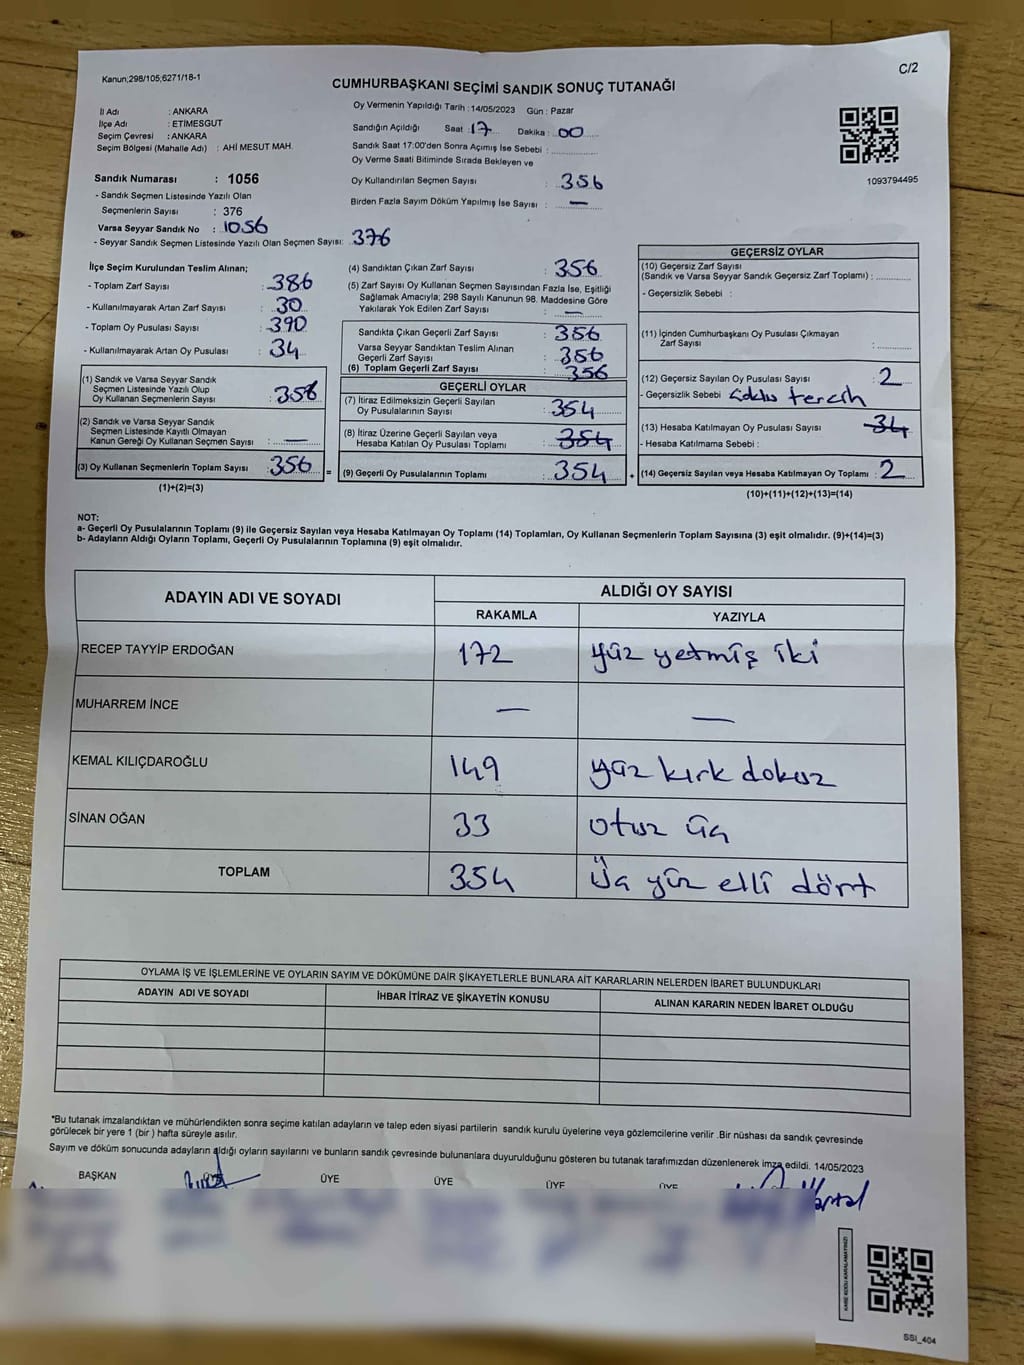 Kanun;298/105;6271/18-1
C/2
CUMHURBAŞKANI SEÇİMİ SANDIK SONUÇ TUTANAĞI
İl Adı : ANKARA
İlçe Adı : ETİMESGUT
Seçim Çevresi : ANKARA
Seçim Bölgesi (Mahalle Adı) : AHİ MESUT MAH.
Sandık Numarası : 1056
- Sandık Seçmen Listesinde Yazılı Olan
Seçmenlerin Sayısı : 376
Varsa Seyyar Sandık No : 1056
- Seyyar Sandık Seçmen Listesinde Yazılı Olan Seçmen Sayısı: 376
Oy Vermenin Yapıldığı Tarih : 14/05/2023 Gün : Pazar
Sandığın Açıldığı Saat : 17 Dakika : 00
Sandık Saat 17:00'den Sonra Açımış İse Sebebi :
Oy Verme Saati Bitiminde Sırada Bekleyen ve
Oy Kullandırılan Seçmen Sayısı : 356
Birden Fazla Sayım Döküm Yapılmış İse Sayısı : —
1093794495
İlçe Seçim Kurulundan Teslim Alınan;
- Toplam Zarf Sayısı : 386
- Kullanılmayarak Artan Zarf Sayısı : 30
- Toplam Oy Pusulası Sayısı : 390
- Kullanılmayarak Artan Oy Pusulası : 34
(1) Sandık ve Varsa Seyyar Sandık
Seçmen Listesinde Yazılı Olup
Oy Kullanan Seçmenlerin Sayısı : 356
(2) Sandık ve Varsa Seyyar Sandık
Seçmen Listesinde Kayıtlı Olmayan
Kanun Gereği Oy Kullanan Seçmen Sayısı : —
(3) Oy Kullanan Seçmenlerin Toplam Sayısı : 356
(1)+(2)=(3)
(4) Sandıktan Çıkan Zarf Sayısı : 356
(5) Zarf Sayısı Oy Kullanan Seçmen Sayısından Fazla İse, Eşitliği
Sağlamak Amacıyla; 298 Sayılı Kanunun 98. Maddesine Göre
Yakılarak Yok Edilen Zarf Sayısı : —
Sandıkta Çıkan Geçerli Zarf Sayısı : 356
Varsa Seyyar Sandıktan Teslim Alınan
Geçerli Zarf Sayısı : 356
(6) Toplam Geçerli Zarf Sayısı : 356
GEÇERLİ OYLAR
(7) İtiraz Edilmeksizin Geçerli Sayılan
Oy Pusulalarının Sayısı : 354
(8) İtiraz Üzerine Geçerli Sayılan veya
Hesaba Katılan Oy Pusulası Toplamı : 354
= (9) Geçerli Oy Pusulalarının Toplamı : 354 +
GEÇERSİZ OYLAR
(10) Geçersiz Zarf Sayısı
(Sandık ve Varsa Seyyar Sandık Geçersiz Zarf Toplamı) :
- Geçersizlik Sebebi :
(11) İçinden Cumhurbaşkanı Oy Pusulası Çıkmayan
Zarf Sayısı :
(12) Geçersiz Sayılan Oy Pusulası Sayısı : 2
- Geçersizlik Sebebi tercih
(13) Hesaba Katılmayan Oy Pusulası Sayısı : 34
- Hesaba Katılmama Sebebi :
(14) Geçersiz Sayılan veya Hesaba Katılmayan Oy Toplamı : 2
(10)+(11)+(12)+(13)=(14)
NOT:
a- Geçerli Oy Pusulalarının Toplamı (9) ile Geçersiz Sayılan veya Hesaba Katılmayan Oy Toplamı (14) Toplamları, Oy Kullanan Seçmenlerin Toplam Sayısına (3) eşit olmalıdır. (9)+(14)=(3)
b- Adayların Aldığı Oyların Toplamı, Geçerli Oy Pusulalarının Toplamına (9) eşit olmalıdır.
ADAYIN ADI VE SOYADI
ALDIĞI OY SAYISI
RAKAMLA YAZIYLA
RECEP TAYYİP ERDOĞAN 172 yüz yetmiş iki
MUHARREM İNCE — —
KEMAL KILIÇDAROĞLU 149 yüz kırk dokuz
SİNAN OĞAN 33 otuz üç
TOPLAM 354 Üç yüz elli dört
OYLAMA İŞ VE İŞLEMLERİNE VE OYLARIN SAYIM VE DÖKÜMÜNE DAİR ŞİKAYETLERLE BUNLARA AİT KARARLARIN NELERDEN İBARET BULUNDUKLARI
ADAYIN ADI VE SOYADI İHBAR İTİRAZ VE ŞİKAYETİN KONUSU ALINAN KARARIN NEDEN İBARET OLDUĞU
*Bu tutanak imzalandıktan ve mühürlendikten sonra seçime katılan adayların ve talep eden siyasi partilerin sandık kurulu üyelerine veya gözlemcilerine verilir .Bir nüshası da sandık çevresinde
görülecek bir yere 1 (bir ) hafta süreyle asılır.
Sayım ve döküm sonucunda adayların aldığı oyların sayılarını ve bunların sandık çevresinde bulunanlara duyurulduğunu gösteren bu tutanak tarafımızdan düzenlenerek imza edildi. 14/05/2023
BAŞKAN ÜYE ÜYE ÜYE ÜYE ÜYE
KARE KODU KARALAMAYINIZ!
SSI_404